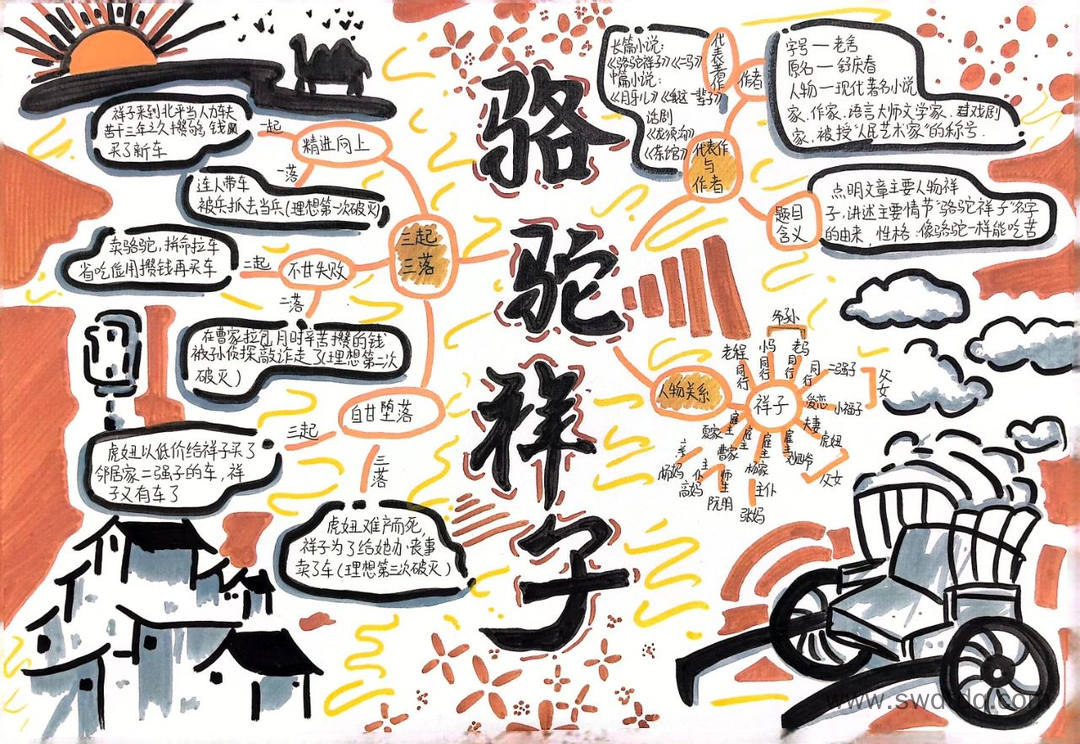 骆
驼
祥
子
三起
三落
精进向上
一起
祥子来到北平当人力车夫
苦干三年
买了新车
一落
连人带车
被兵抓去当兵(理想第一次破灭)
不甘失败
二起
卖骆驼,拼命拉车
省吃俭用攒钱再买车
二落
在曹家拉包月时辛苦攒的钱
被孙侦探敲诈走了(理想第二次
破灭)
自甘堕落
三起
虎妞以低价给祥子买了
邻居家二强子的车,祥
子又有车了
三
落
虎妞难产而死
祥子为了给她办丧事
卖了车(理想第三次破灭)
代表作
与
作者
代
表
作
长篇小说:
《骆驼祥子》《二马》
中篇小说:
《月牙儿》《我这一辈子》
话剧
《龙须沟》
《茶馆》
作者
字号一老舍
原名一舒庆春
人物一现代著名小说
家、作家、语言大师文学家、
家、被授“人民艺术家”的称号.
题目
含义
点明文章主要人物祥
子,讲述主要情节“骆驼祥子”名字
的由来,性格:像骆驼一样能吃苦
人物关系
祥子
老程
同行
小马
同行
老马
同行
同行
二强子
父女
小福子
夫妻
虎妞
父女
刘四爷
雇主
杨家
主仆
张妈
雇主
曹家
师生
阮明
主仆
高妈
雇主
夏家
杨妈
www.swdtdq.com